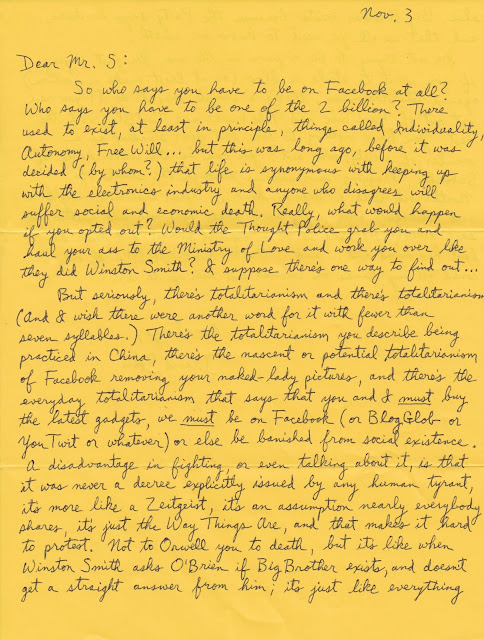 Nov. 3
Dear Mr. S:
So who says you have to be on Facebook at all?
Who says you have to be one of the 2 billion? There
used to exist, at least in principle, things called Individuality,
Autonomy, Free Will... but this was long ago, before it was
decided (by whom?) that life is synonymous with keeping up
with the electronics industry and anyone who disagrees will
suffer social and economic death. Really, what would happen
if you opted out? Would the Thought Police grab you and
haul your ass to the Ministry of Love and work you over like
they did Winston Smith? I suppose there's one way to find out...
But seriously, there's totalitarianism and there's totalitarianism
(And I wish there were another word for it with fewer than
seven syllables.) There's the totalitarianism you describe being
practiced in China, there's the nascent or potential totalitarianism
of Facebook removing your naked-lady pictures, and there's the
everyday totalitarianism that says that you and I must buy
the latest gadgets, we must be on Facebook (or BlogGlob or
YouTwit or whatever) or else be banished from social existence.
A disadvantage in fighting, or even talking about it, is that
it was never a decree explicitly issued by any human tyrant,
it's more like a Zeitgeist, it's an assumption nearly everybody
shares, it's just the Way Things Are, and that makes it hard
to protest. Not to Orwell you to death, but it's like when
Winston Smith asks O'Brien if Big Brother exists, and doesn't
get a straight answer from him; it's just like everything